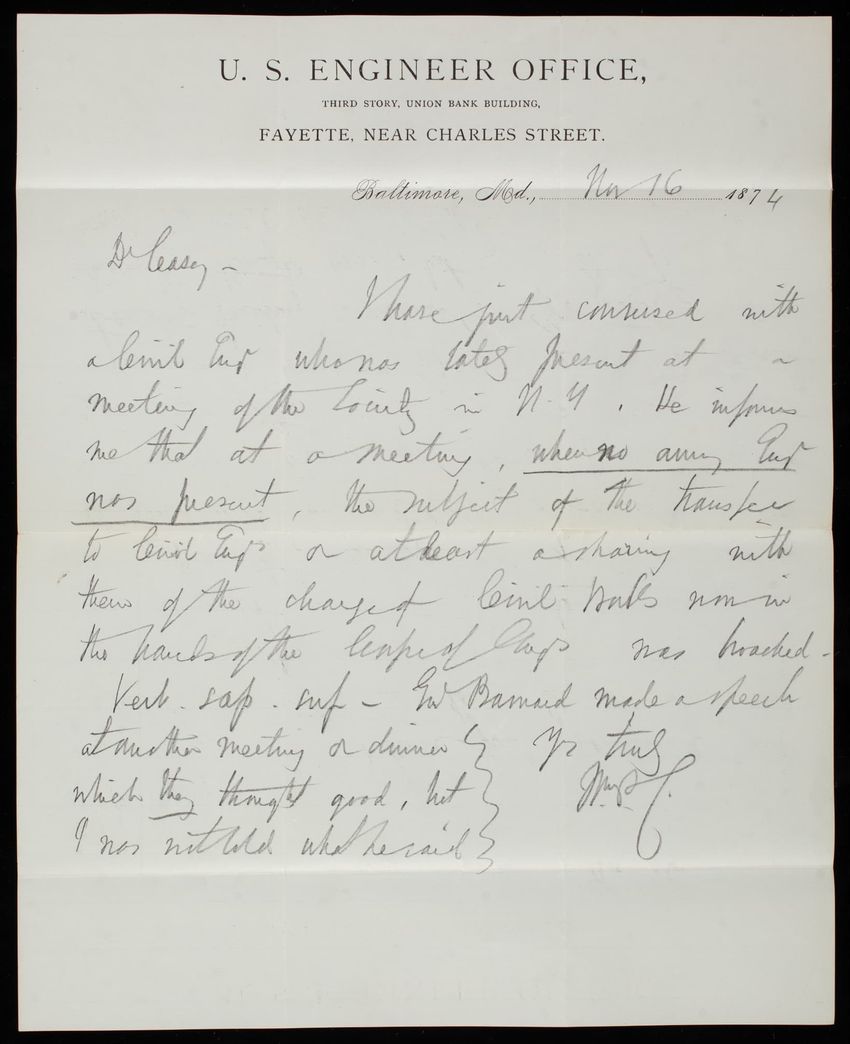 U. S. ENGINEER OFFICE,
THIRD STORY, UNION BANK BUILDING,
FAYETTE, NEAR CHARLES STREET.
Baltimore, Md., Nov 16 1874
Dr Casey –
I have just conversed with
a Civil Engr who was lately present at a
meeting of the Society in N.Y. He informs
me that at a meeting, when no army Engr
was present, the subject of the transfer
to Civil Engrs or at least a sharing with
them of the charge of Civil Works now in
the hands of the Corps of Engrs was broached –
Verb. sap. suf – Genl Barnard made a speech
at another meeting or dinner Yrs truly
which they thought good, but Wm P. C.
I was not told what he said